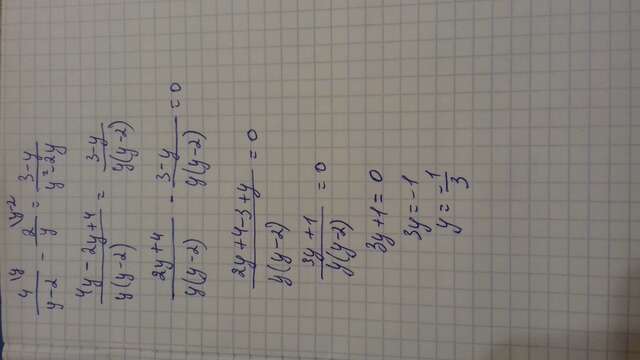 4\y/(y-2) - 2\y-2/y = (3-y)/(y²-2y)
(4y-2y+4)/(y(y-2)) = (3-y)/(y(y-2))
(2y+4)/(y(y-2)) - (3-y)/(y(y-2)) = 0
(2y+4-3+y)/(y(y-2)) = 0
(3y+1)/(y(y-2)) = 0
3y+1=0
3y=-1
y=-1/3